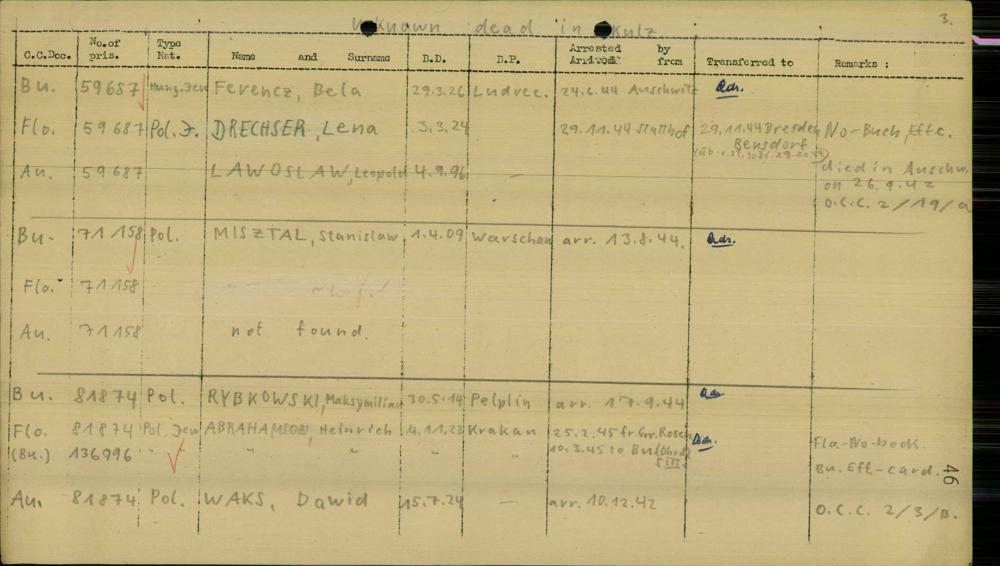 3.
Unknown dead in Kulz.
C.C.Doc. No.of pris. Type Nat. Name and Surname D.D. D.P. Arrested by Arrived from Transferred to Remarks :
Bu. 59687 Hung.Jew Ferencz, Bela 29.3.26 Ludvec. 24.6.44 Auschwitz
Flo. 59687 Pol.J. DRECHSER, Lena 3.3.24 29.11.44 Stutthof 29.11.44 Dresden No-Buch, Eff c.
Bensdorf
Au. 59687 LAWOSLAW, Leopold 4.9.96 - died in Auschw.
on 26.9.42
O.C.C. 2/19/a
Bu. 71158 Pol. MISZTAL, Stanislaw, 1.4.09 Warschau arr. 13.8.44.
Flo. 71158
Au. 71158 not found.
Bu. 81874 Pol. RYBKOWSKI, Maksymilian 30.5.14 Pelplin arr. 17.9.44
Flo. 81874 Pol Jew ABRAHAMSON, Heinrich 4.11.23 Krakau 25.2.45 fr. Gr. Rosen Flo.-No-book.
(Bu.) 136996 " " " " " " 10.3.45 to Bu. (Ohrd. Bu. Eff.-card.
S III)
46
Au. 81874 Pol. WAKS, Dawid 15.7.24 - arr. 10.12.42 O.C.C. 2/3/B.